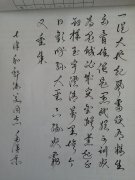 一從大地起風雷便有精生
白骨堆僧是愚氓猶可訓妖
為鬼蜮必成災金猴奮起
千鈞棒玉宇澄清萬里埃今
日歡呼孫大聖只緣妖霧
又重來
七律和郭沫若同志 毛澤東